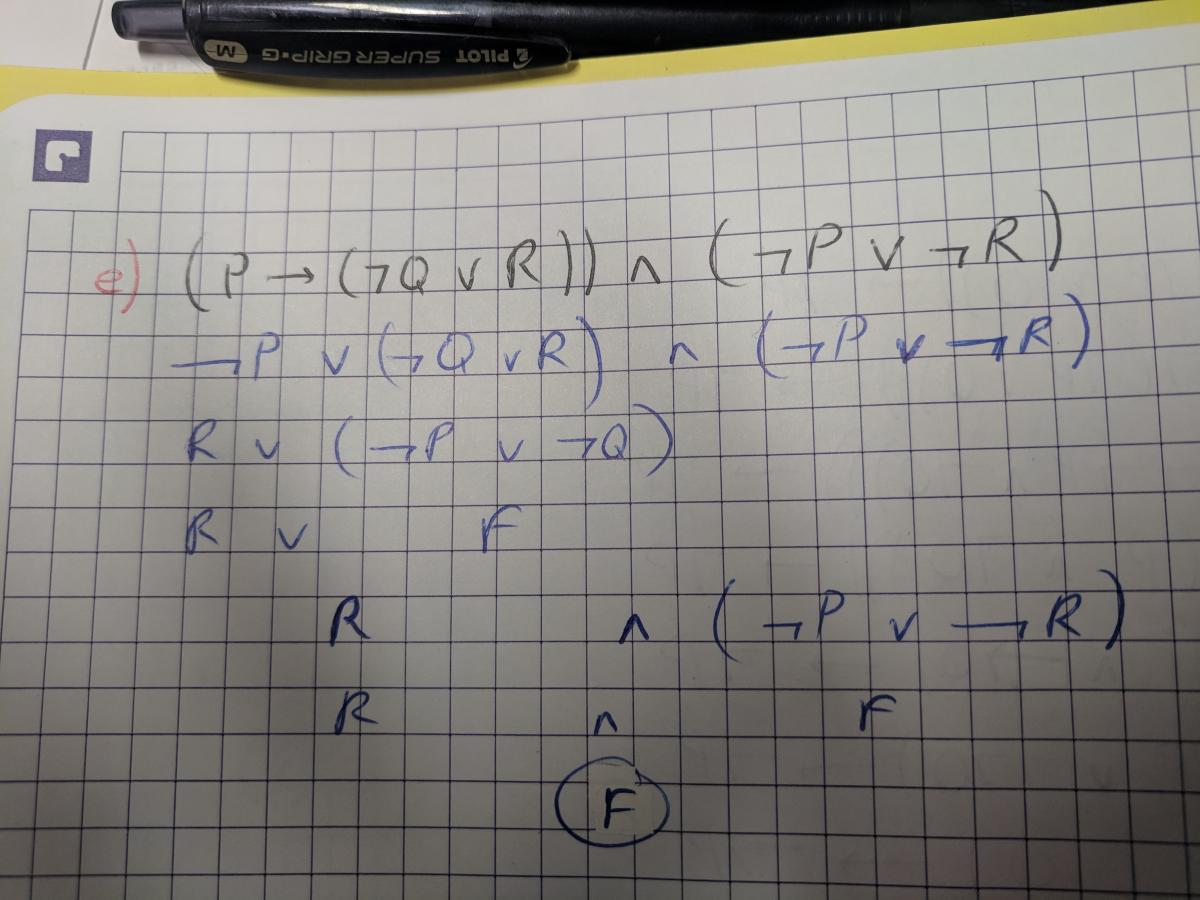 PILOT SUPER GRIP·G M
e) (P → (¬Q ∨ R)) ∧ (¬P ∨ ¬R)
¬P ∨ (¬Q ∨ R) ∧ (¬P ∨ ¬R)
R ∨ (¬P ∨ ¬Q)
R ∨ F
R ∧ (¬P ∨ ¬R)
R ∧ F
F